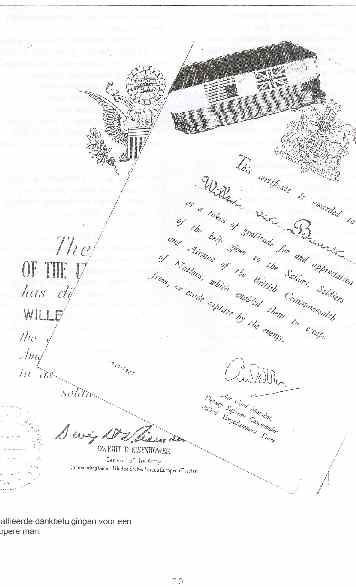 This certificate is awarded to
Willem
as a token of gratitude for and appreciation
of the help given to the Sailors, Soldiers
and Airmen of the British Commonwealth
of Nations, which enabled them to escape
from, or evade capture by the enemy.
Air Chief Marshal,
Deputy Supreme Commander
Allied Expeditionary Force
The
OF THE U
has di
WILLE
the
in
soldie
Dwight D. Eisenhower
DWIGHT D. EISENHOWER
General of the Army
Commanding General United States Forces European Theater
allieerde dankbetuigingen voor een
apere man.